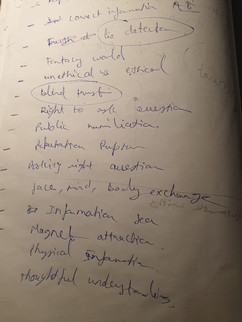 correct information A B
lie detector
Fantasy world
unethical vs Ethical
blind trust
Right to ask question
Public humiliation
Reputation Rupture
Asking right question
face, mind, body exchange
Information Sea
Magnet attraction
Physical Information
thoughtful understanding